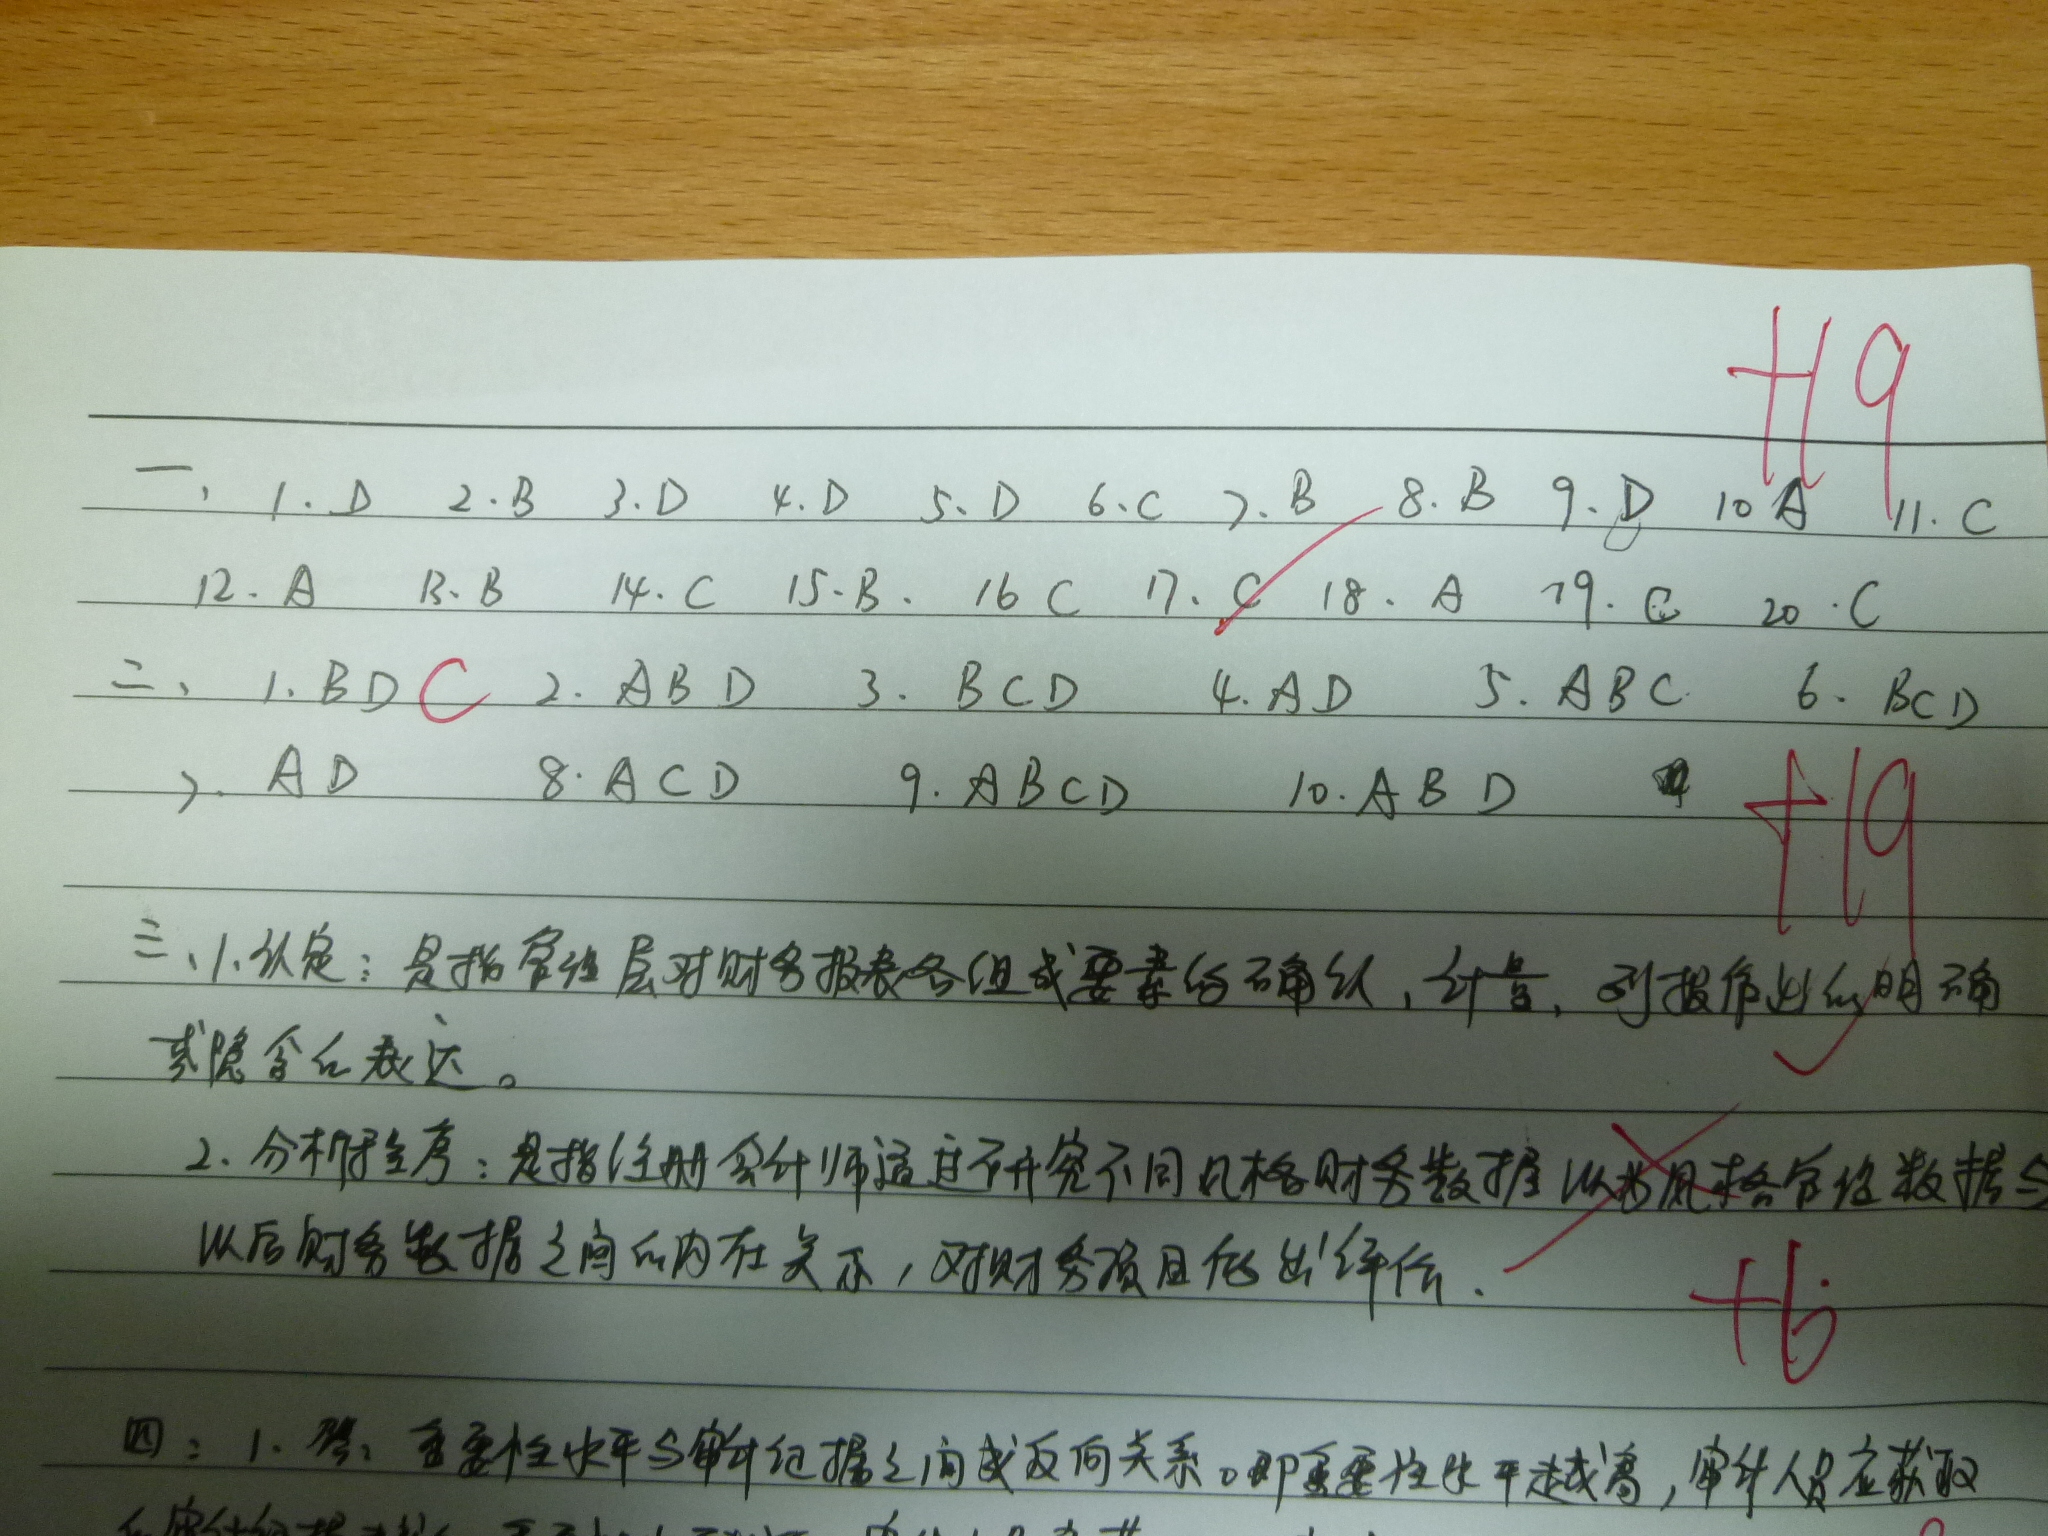 +19
一、 1. D 2. B 3. D 4. D 5. D 6. C 7. B 8. B 9. D 10 A 11. C
12. A 13. B 14. C 15. B. 16 C 17. C 18. A 19. C 20. C
二、 1. BD C 2. ABD 3. BCD 4. AD 5. ABC 6. BCD
7. AD 8. ACD 9. ABCD 10. ABD
+19
三、1. 认定：是指管理层对财务报表各组成要素的确认，计量，列报作出的明确
或隐含的表达。
2. 分析程序：是指注册会计师通过研究不同风格财务数据以及风格管理数据与
以后财务数据之间的内在关系，对财务项目作出评价.
+6
四：1. 答：重要性水平与审计证据之间成反向关系。即重要性水平越高，审计人员应获取